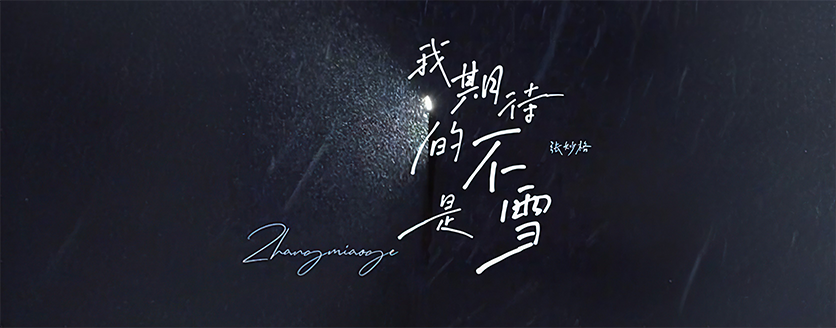 我期待
的不
是雪
张妙格
Zhangmiaoge